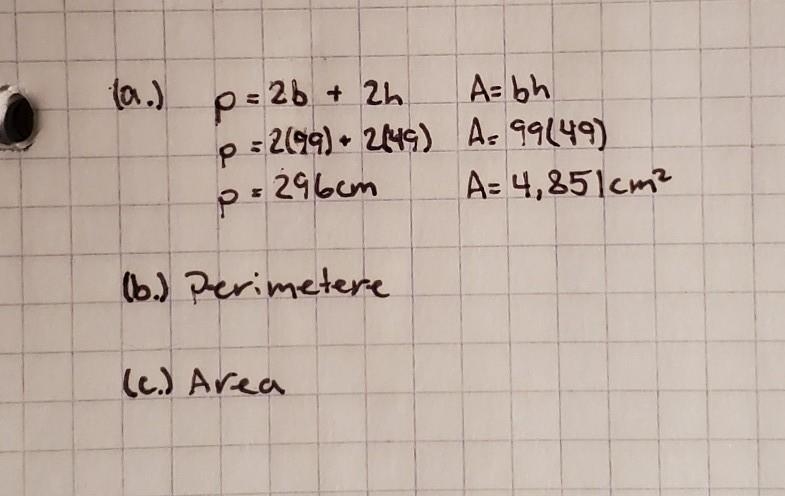 (a.) p = 2b + 2h A = bh
p = 2(99) + 2(49) A = 99(49)
p = 296cm A = 4,851cm²
(b.) Perimetere
(c.) Area